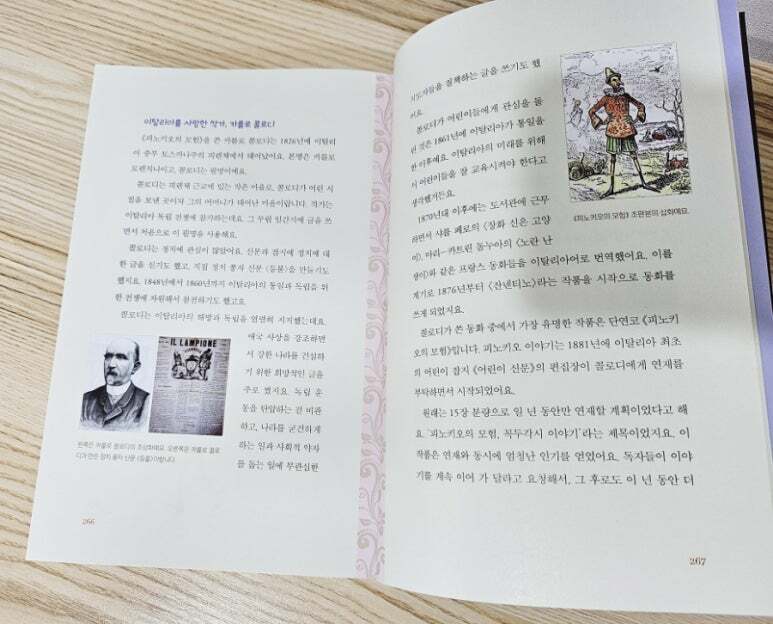 이탈리아를 사랑한 작가, 카를로 콜로디
《피노키오의 모험》을 쓴 카를로 콜로디는 1826년에 이탈리
아 중부 토스카나주의 피렌체에서 태어났어요. 본명은 카를로
로렌치니이고, 콜로디는 필명이에요.
콜로디는 피렌체 근교에 있는 작은 마을로, 콜로디가 어린 시
절을 보낸 곳이자 그의 어머니가 태어난 마을이랍니다. 작가는
이탈리아 독립 전쟁에 참가하는데요. 그 무렵 일간지에 글을 쓰
면서 처음으로 이 필명을 사용해요.
콜로디는 정치에 관심이 많았어요. 신문과 잡지에 정치에 대
한 글을 싣기도 했고, 직접 정치 풍자 신문 《등불》을 만들기도
했지요. 1848년에서 1860년까지 이탈리아의 통일과 독립을 위
한 전쟁에 자원해서 참전하기도 했고요.
콜로디는 이탈리아의 해방과 독립을 열렬히 지지했는데요.
애국 사상을 강조하면
서 강한 나라를 건설하
기 위한 희망적인 글을
주로 썼지요. 독립 운
동을 탄압하는 걸 비판
하고, 나라를 굳건하게
하는 일과 사회적 약자
를 돕는 일에 무관심한
IL LAMPIONE
왼쪽은 카를로 콜로디의 초상화예요. 오른쪽은 카를로 콜로
디가 만든 정치 풍자 신문 《등불》이랍니다.
266
지도자들을 질책하는 글을 쓰기도 했
어요.
콜로디가 어린이들에게 관심을 둘
린 것은 1861년에 이탈리아가 통일을
한 이후예요. 이탈리아의 미래를 위해
서 어린이들을 잘 교육시켜야 한다고
생각했거든요.
1870년대 이후에는 도서관에 근무
하면서 샤를 페로의 《장화 신은 고양
이》, 마리-카트린 돌누아의 《노란 난
쟁이》와 같은 프랑스 동화들을 이탈리아어로 번역했어요. 이를
계기로 1876년부터 《잔네티노》라는 작품을 시작으로 동화를
쓰게 되었지요.
콜로디가 쓴 동화 중에서 가장 유명한 작품은 단연코 《피노키
오의 모험》입니다. 피노키오 이야기는 1881년에 이탈리아 최초
의 어린이 잡지 《어린이 신문》의 편집장이 콜로디에게 연재를
부탁하면서 시작되었어요.
원래는 15장 분량으로 일 년 동안만 연재할 계획이었다고 해
요. '피노키오의 모험, 꼭두각시 이야기'라는 제목이었지요. 이
작품은 연재와 동시에 엄청난 인기를 얻었어요. 독자들이 이야
기를 계속 이어 가 달라고 요청해서, 그 후로도 이 년 동안 더
《피노키오의 모험》 초판본의 삽화예요.
267